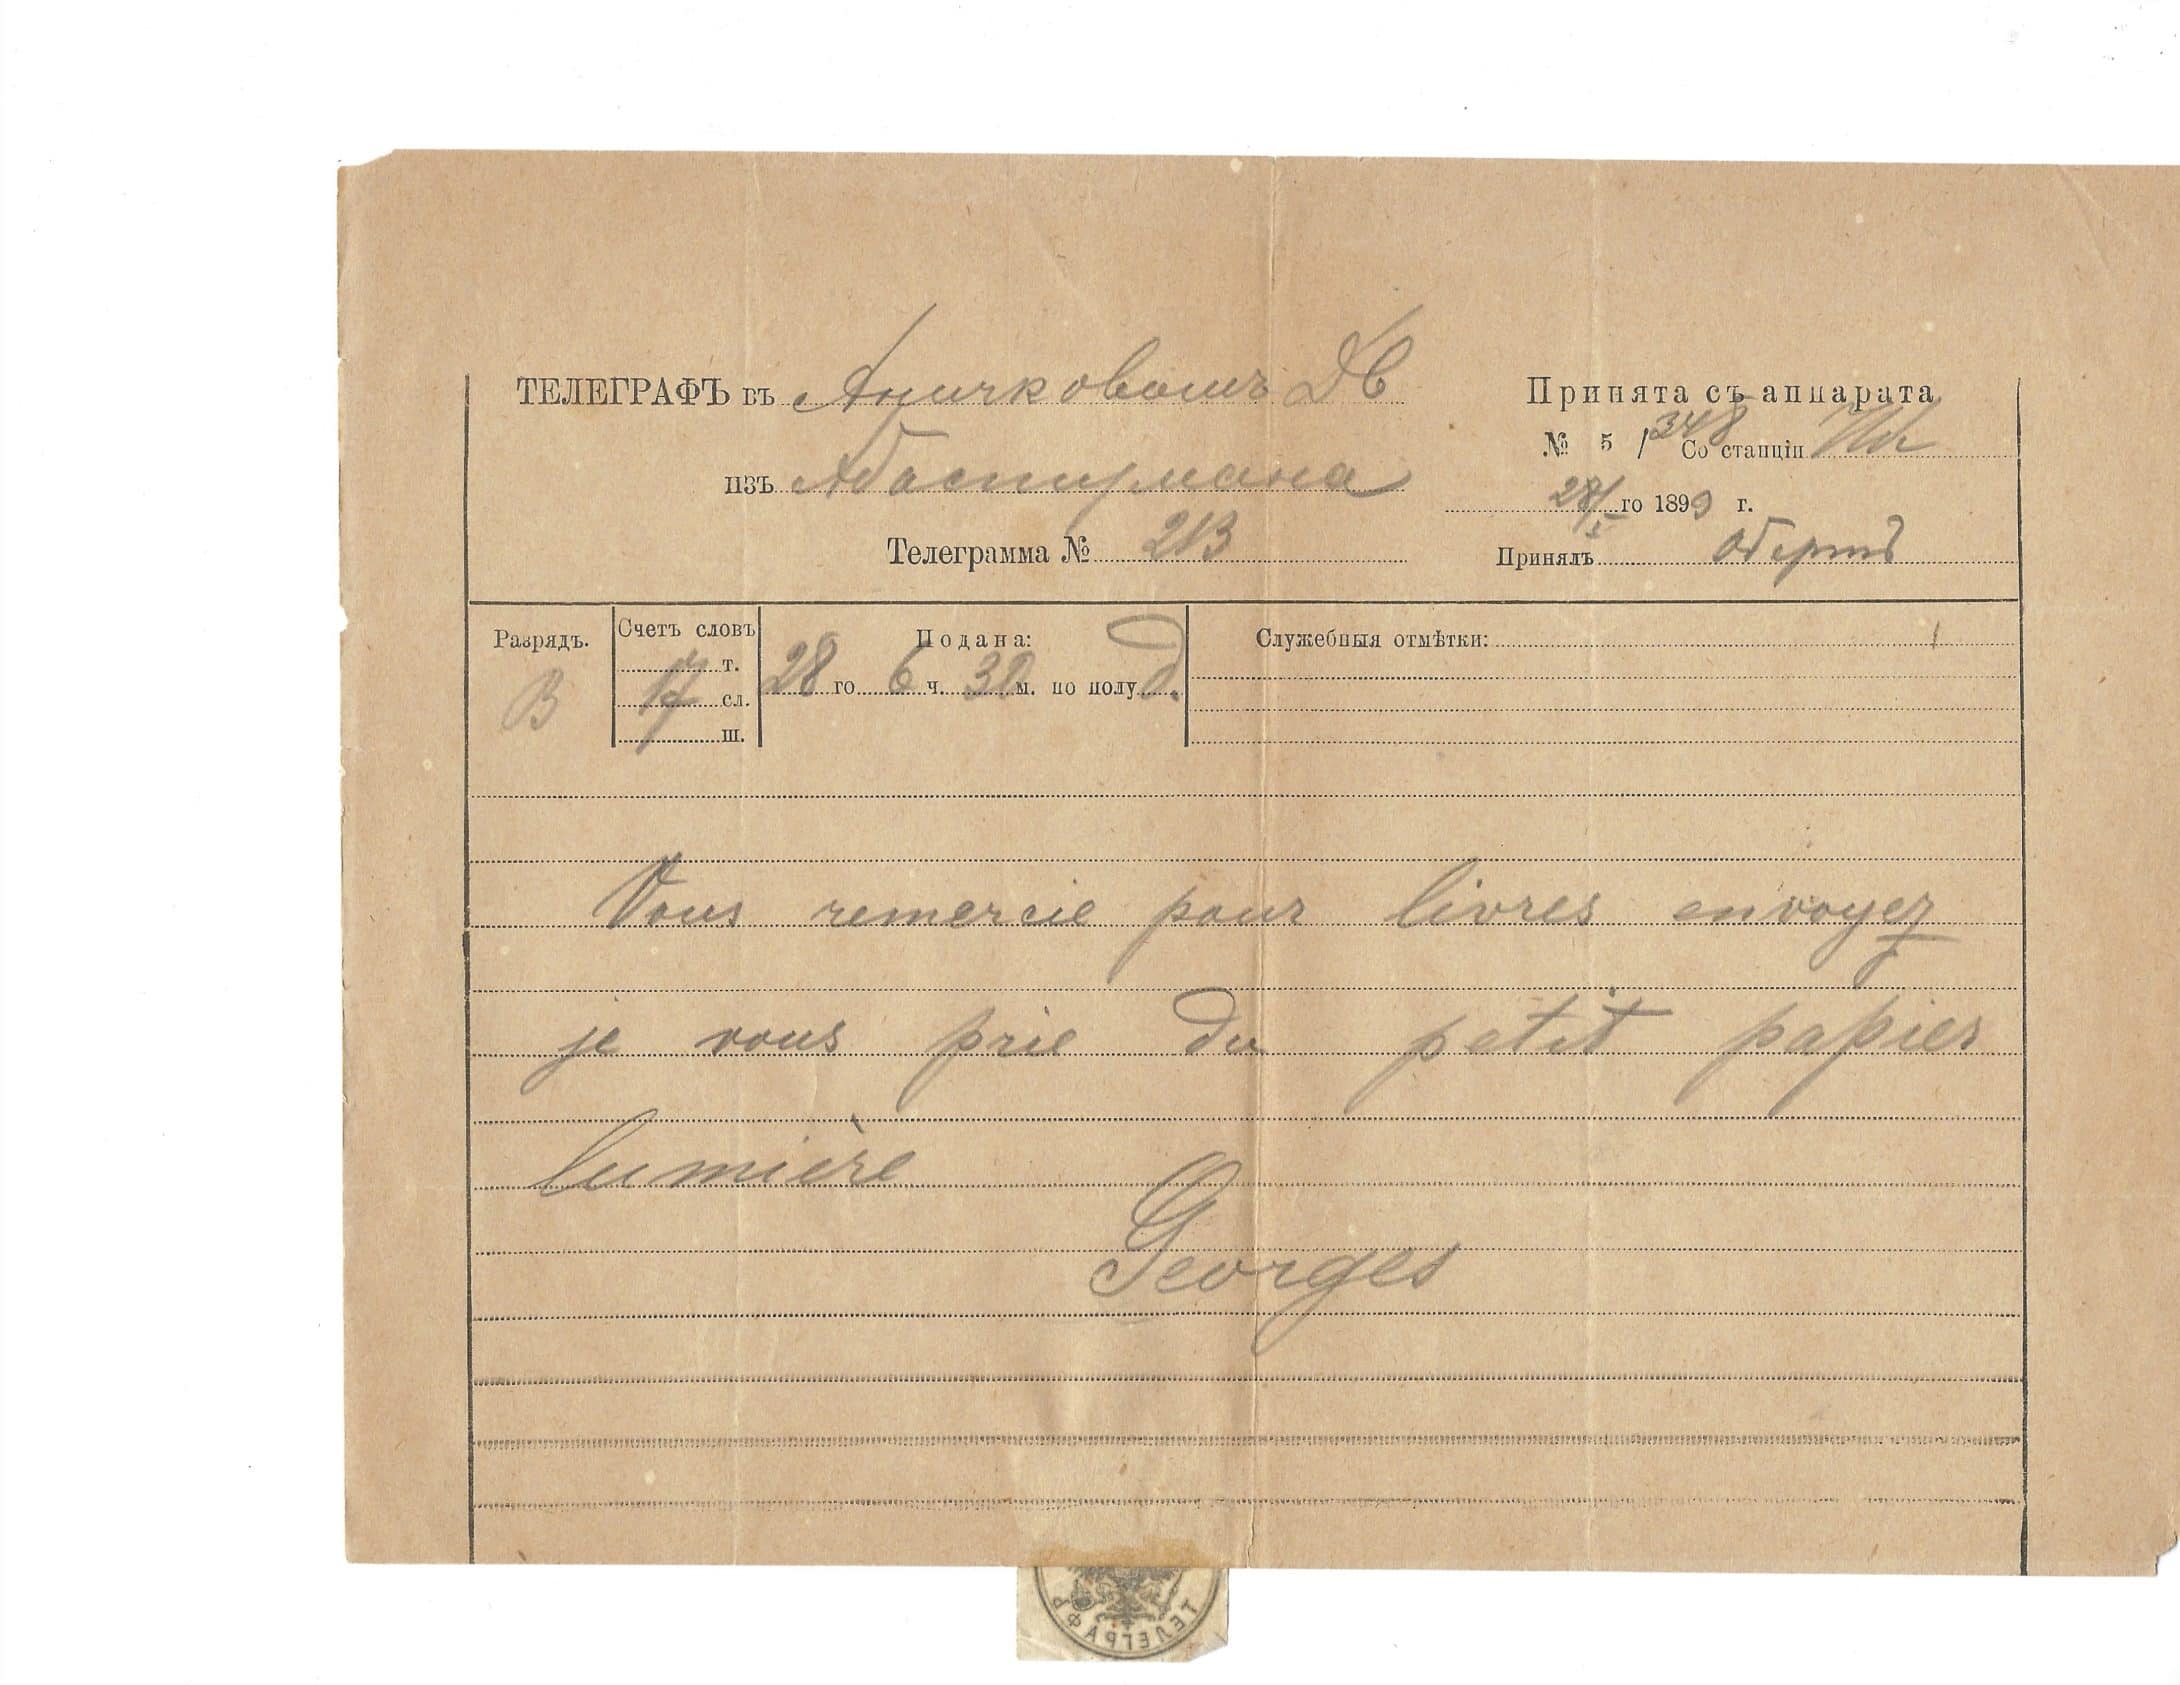 ТЕЛЕГРАФЪ въ Аничковомъ ДВ
Принята съ аппарата
№ 5 / 348 Со станціи
изъ Абастумана
28/5 го 1899 г.
Телеграмма № 213
Принялъ
Разрядъ.
В
Счетъ словъ
т.
17 сл.
ш.
Подана:
28 го 6 ч. 30 м. по полу д.
Служебныя отмѣтки:
Vous remercie pour livres envoyez
je vous prie du petit papier
lumière
Georges
ТЕЛЕГРАФ